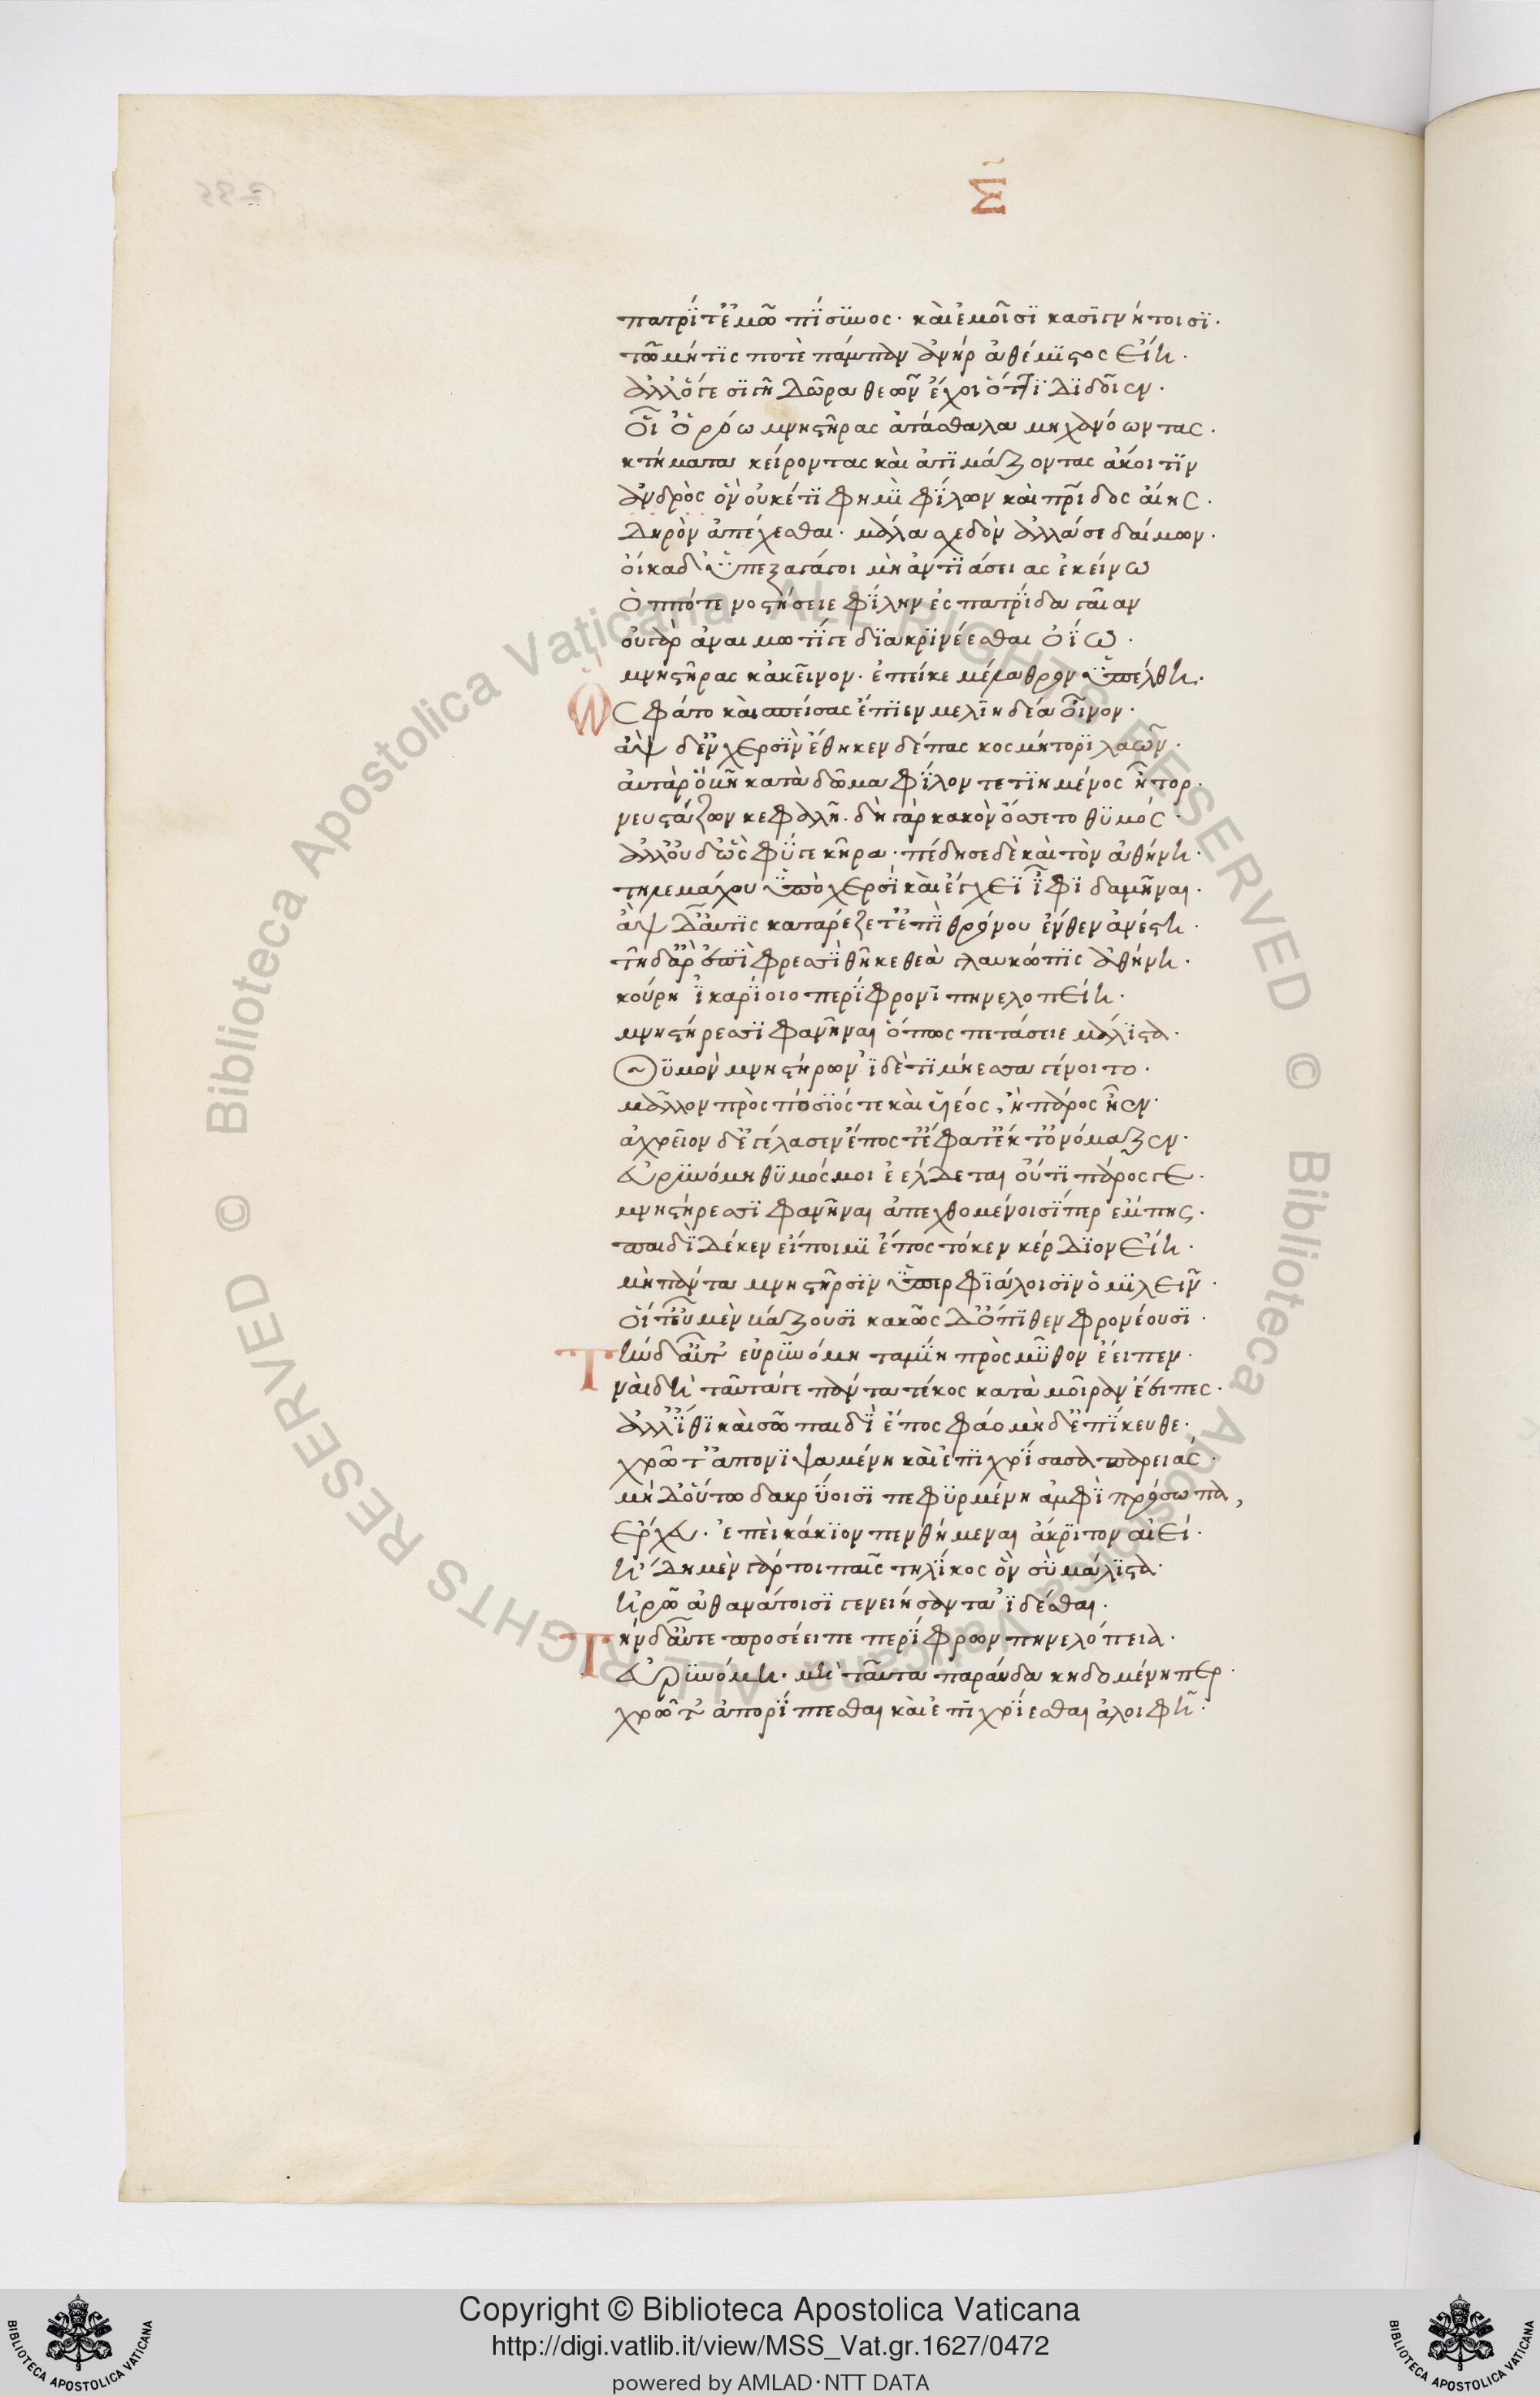 Σ
πατρί τ' ἐμῶ πίσυνος· καὶ ἐμοῖσι κασιγνήτοισι·
τῶ μή τις ποτὲ πάμπαν ἀνὴρ ἀθέμιστος εἴη·
ἀλλ' ὅ γε σιγῆ δῶρα θεῶν ἔχοι ὅττι διδοῖεν·
οἷ' ὁρόω μνηστῆρας ἀτάσθαλα μηχανόωντας·
κτήματα κείροντας καὶ ἀτιμάζοντας ἄκοιτιν
ἀνδρὸς ὃν οὐκέτι φημὶ φίλων καὶ πρίδος αἴης·
δηρὸν ἀπέσεσθαι· μάλα σχεδὸν ἀλλά σε δαίμων·
οἴκαδ' ὑπεξαγάγοι μὴ ἀντιάσειας ἐκείνω
ὁππότε νοστήσειε φίλην ἐς πατρίδα γαῖαν
οὐ γὰρ ἀναιμωτί γε διακρινέεσθαι ὀΐω·
μνηστῆρας κἀκεῖνον· ἐπεί κε μέλαθρον ὑπέλθη·
Ὣς φάτο καὶ σπείσας ἔπιεν μελιηδέα οἶνον·
ἂψ δ' ἐν χερσὶν ἔθηκεν δέπας κοσμήτορι λαῶν·
αὐτὰρ ὁ βῆ κατὰ δῶμα φίλον τετιημένος ἦτορ·
νευστάζων κεφαλῆ· δὴ γὰρ κακὸν ὄσσετο θυμός·
ἀλλ' οὐδ' ὣς φύγε κῆρα· πέδησε δὲ καὶ τὸν ἀθήνη·
τηλεμάχου ὑπὸ χερσὶ καὶ ἔγχεϊ ἶφι δαμῆναι·
ἂψ δ' αὖτις κατ' ἄρ' ἕζετ' ἐπὶ θρόνου ἔνθεν ἀνέστη·
τῆ δ' ἄρ' ἐπὶ φρεσὶ θῆκε θεὰ γλαυκῶπις ἀθήνη·
κούρη ἰκαρίοιο περίφρονι πηνελοπείη·
μνηστήρεσσι φανῆναι ὅπως πετάσειε μάλιστα·
Θυμὸν μνηστήρων ἰδὲ τιμήεσσα γένοιτο·
μᾶλλον πρὸς πόσιός τε καὶ υἱέος, ἢ πάρος ἦεν·
ἀχρεῖον δ' ἐγέλασεν ἔπος τ' ἔφατ' ἔκ τ' ὀνόμαζεν·
εὐρυνόμη θυμός μοι ἐέλδεται οὔτι πάρος γε·
μνηστήρεσσι φανῆναι ἀπεχθομένοισί περ ἔμπης·
παιδὶ δέ κεν εἴποιμι ἔπος τό κεν κέρδιον εἴη·
μὴ πάντα μνηστῆρσιν ὑπερφιάλοισιν ὁμιλεῖν·
οἵ τ' εὖ μὲν βάζουσι κακῶς δ' ὄπιθεν φρονέουσι·
Τὴν δ' αὖτ' εὐρυνόμη ταμίη πρὸς μῦθον ἔειπεν·
ναὶ δὴ ταῦτά γε πάντα τέκος κατὰ μοῖραν ἔειπες·
ἀλλ' ἴθι καὶ σῶ παιδὶ ἔπος φάο μὴ δ' ἐπίκευθε·
χρῶτ' ἀπονιψαμένη καὶ ἐπιχρίσασα παρειάς·
μὴ δ' οὕτω δακρύοισι πεφυρμένη ἀμφὶ πρόσωπα,
ἔρχευ· ἐπεὶ κάκιον πενθήμεναι ἄκριτον αἰεί·
ἤδη μὲν γάρ τοι παῖς τηλίκος ὃν σὺ μάλιστα·
ἠρῶ ἀθανάτοισι γενειήσαντα ἰδέσθαι·
Τὴν δ' αὖτε προσέειπε περίφρων πηνελόπεια·
εὐρυνόμη· μὴ ταῦτα παραύδα κηδομένη περ·
χρῶτ' ἀπορίπτεσθαι καὶ ἐπιχρίεσθαι ἀλοιφῆ·
© Biblioteca Apostolica Vaticana ALL RIGHTS RESERVED
© Biblioteca Apostolica Vaticana ALL RIGHTS RESERVED
Copyright © Biblioteca Apostolica Vaticana
http://digi.vatlib.it/view/MSS_Vat.gr.1627/0472
powered by AMLAD·NTT DATA
BIBLIOTECA APOSTOLICA VATICANA
BIBLIOTECA APOSTOLICA VATICANA